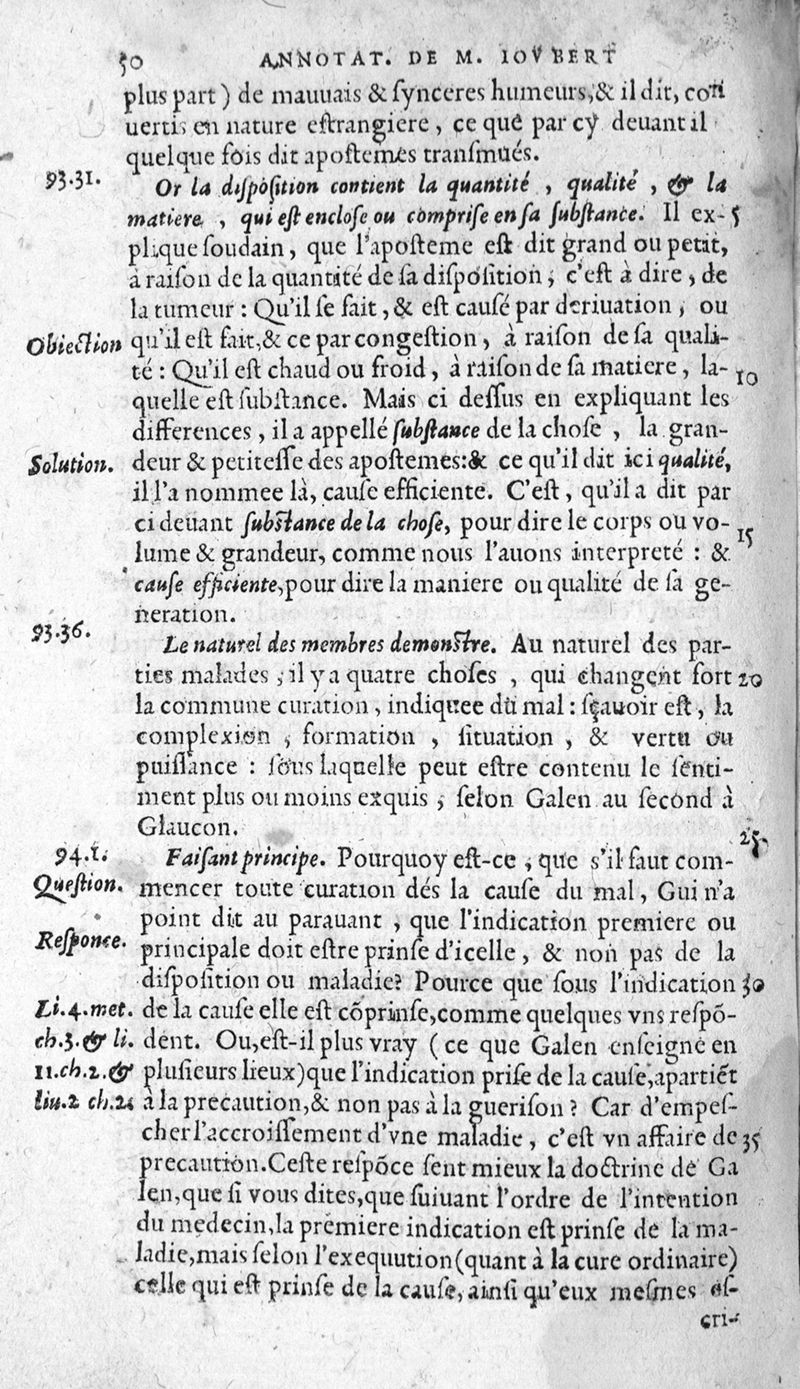 50 ANNOTAT. DE M. IOVBERT
plus part) de mauuais & ſynceres humeurs, & il dit, con
uertis en nature eſtrangiere, ce que par cy deuant il
quelque fois dit apoſtemes tranſmués.
93.31. Or la diſpoſition contient la quantité, qualité, & la
matiere, qui eſt encloſe ou compriſe en ſa ſubſtance. Il ex- 5
plique ſoudain, que l'apoſteme eſt dit grand ou petit,
à raiſon de la quantité de ſa diſpoſition, c'eſt à dire, de
la tumeur : Qu'il ſe fait, & eſt cauſé par deriuation, ou
Obiection qu'il eſt fait, & ce par congeſtion, à raiſon de ſa quali-
té : Qu'il eſt chaud ou froid, à raiſon de ſa matiere, la- 10
quelle eſt ſubſtance. Mais ci deſſus en expliquant les
differences, il a appellé ſubſtance de la choſe, la gran-
Solution. deur & petiteſſe des apoſtemes: & ce qu'il dit ici qualité,
il l'a nommee là, cauſe efficiente. C'eſt, qu'il a dit par
ci deuant ſubſtance de la choſe, pour dire le corps ou vo- 15
lume & grandeur, comme nous l'auons interpreté : &
cauſe efficiente, pour dire la maniere ou qualité de ſa ge-
neration.
93.36. Le naturel des membres demonſtre. Au naturel des par-
ties malades, il y a quatre choſes, qui changent fort 20
la commune curation, indiquee du mal : ſçauoir eſt, la
complexion, formation, ſituation, & vertu ou
puiſſance : ſous laquelle peut eſtre contenu le ſenti-
ment plus ou moins exquis, ſelon Galen au ſecond à
Glaucon. 25.
94.1. Faiſant principe. Pourquoy eſt-ce, que s'il faut com-
Queſtion. mencer toute curation dés la cauſe du mal, Gui n'a
point dit au parauant, que l'indication premiere ou
Reſponce. principale doit eſtre prinſe d'icelle, & non pas de la
diſpoſition ou maladie? Pource que ſous l'indication 30
Li.4.met. de la cauſe elle eſt cõprinſe, comme quelques vns reſpõ-
ch.3.& li. dent. Ou, eſt-il plus vray (ce que Galen enſeigne en
11.ch.2.& pluſieurs lieux) que l'indication priſe de la cauſe, apartiẽt
liu.2 ch.21 à la precaution, & non pas à la gueriſon? Car d'empeſ-
cher l'accroiſſement d'vne maladie, c'eſt vn affaire de 35
precaution. Ceſte reſpõce ſent mieux la doctrine de Ga
len, que ſi vous dites, que ſuiuant l'ordre de l'intention
du medecin, la premiere indication eſt prinſe de la ma-
ladie, mais ſelon l'exequution (quant à la cure ordinaire)
celle qui eſt prinſe de la cauſe, ainſi qu'eux meſmes eſ-
cri-